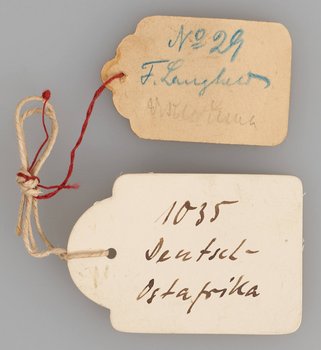 No 29
F. Langheld
1035
Deutsch-
Ostafrika